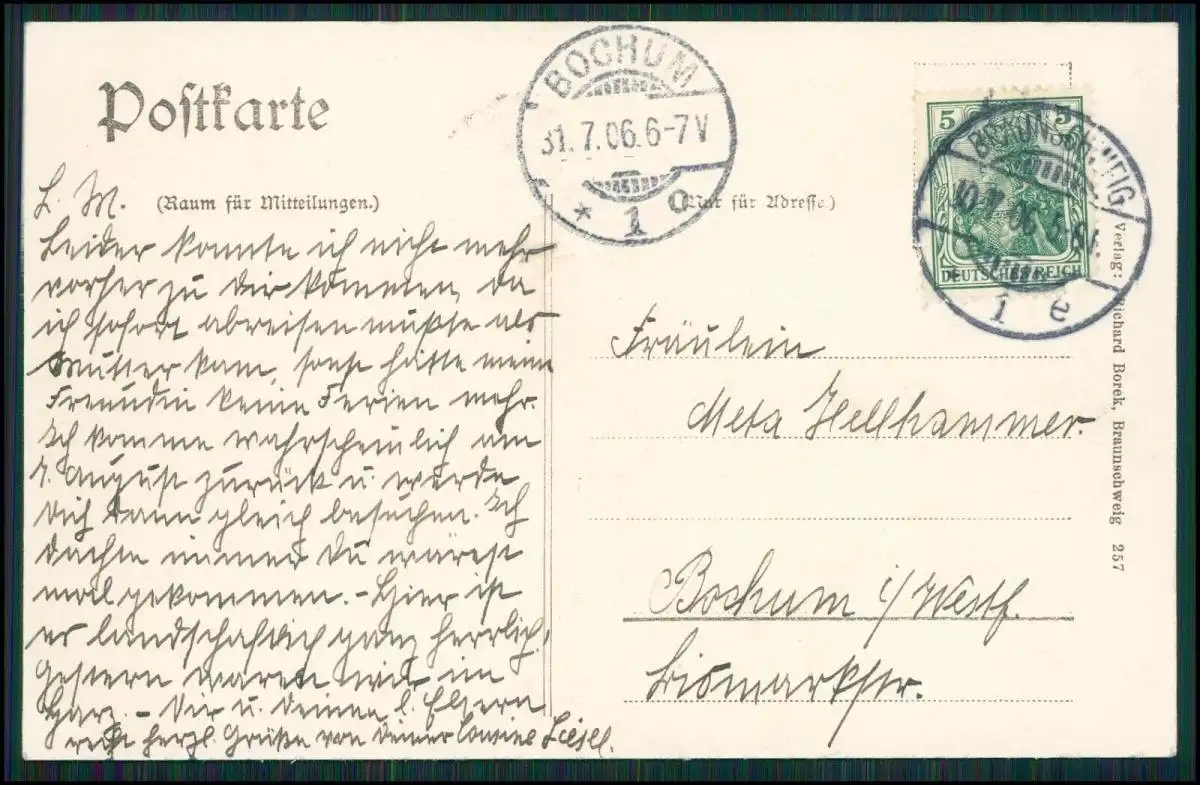 Postkarte
BOCHUM
31.7.06.6-7V
* 1 c
5 5
BRAUNSCHWEIG
06
DEUTSCHES REICH
1 e
(Raum für Mitteilungen.)
(Nur für Adresse.)
L. M.
Leider konnte ich nicht mehr
vorher zu dir kommen, da
ich sofort abreisen mußte als
Mutter kam, sonst hätte meine
Freundin keine Ferien mehr.
Ich komme wahrscheinlich am
7. August zurück u. werde
dich dann gleich besuchen. Ich
dachte immer du wärest
mal gekommen. - Hier ist
es landschaftlich ganz herrlich.
Gestern waren wir im
Harz. - Dir u. deinen l. Eltern
recht herzl. Grüße von deiner Cousine Liesel.
Fräulein
Meta Hellhammer.
Bochum i/Westf.
Bismarckstr.
Verlag: Richard Borek, Braunschweig 257